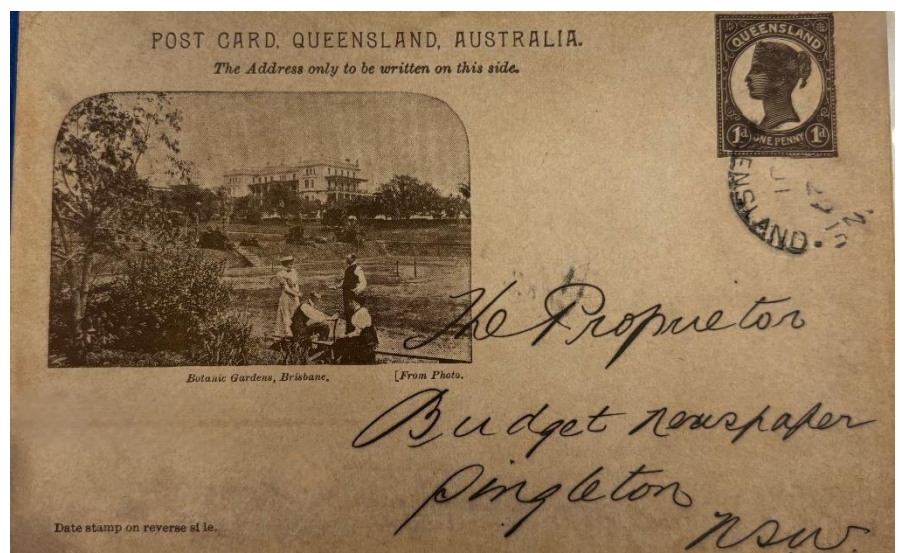 POST CARD, QUEENSLAND, AUSTRALIA.
The Address only to be written on this side.
QUEENSLAND
1d ONE PENNY 1d
ENSLAND.
Botanic Gardens, Brisbane,
[From Photo.
The Proprietor
Budget newspaper
Singleton
NSW
Date stamp on reverse si le.